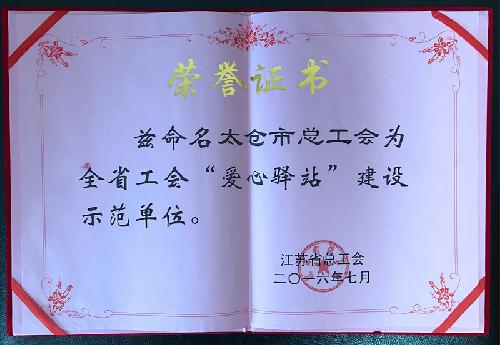 荣誉证书
兹命名太仓市总工会为
全省工会“爱心驿站”建设
示范单位。
江苏省总工会
二〇一六年七月